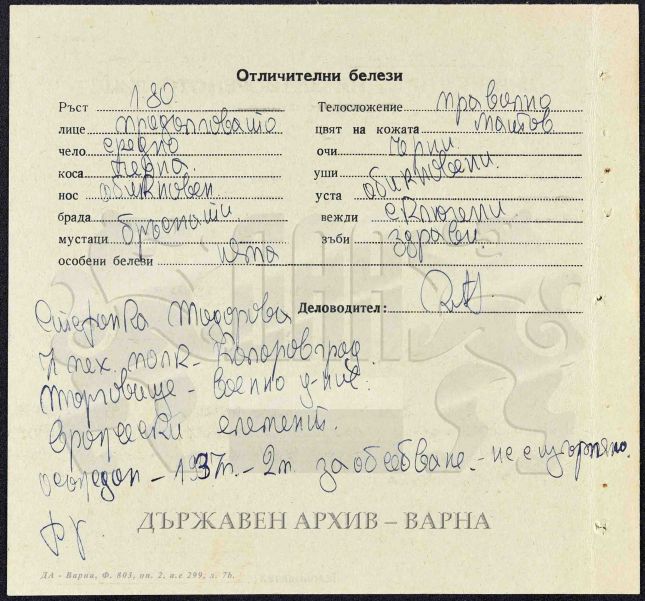 Отличителни белези
Ръст 1.80 Телосложение правилно
лице продолговато цвят на кожата матов
чело средно очи черни
коса черна уши обикновени
нос обикновен уста
брада вежди сключени
мустаци бръснати зъби здрави
особени белези няма
Деловодител:
Стефанка Тодорова
7 пех. полк - Коларовград
Търговище - военно у-ние.
елемент.
осъден - 1937г. - 2 г. за обсебване. - не е изтърпяно.
ДЪРЖАВЕН АРХИВ – ВАРНА
ДА - Варна, Ф. 803, оп. 2, а.е 299, л. 7b.